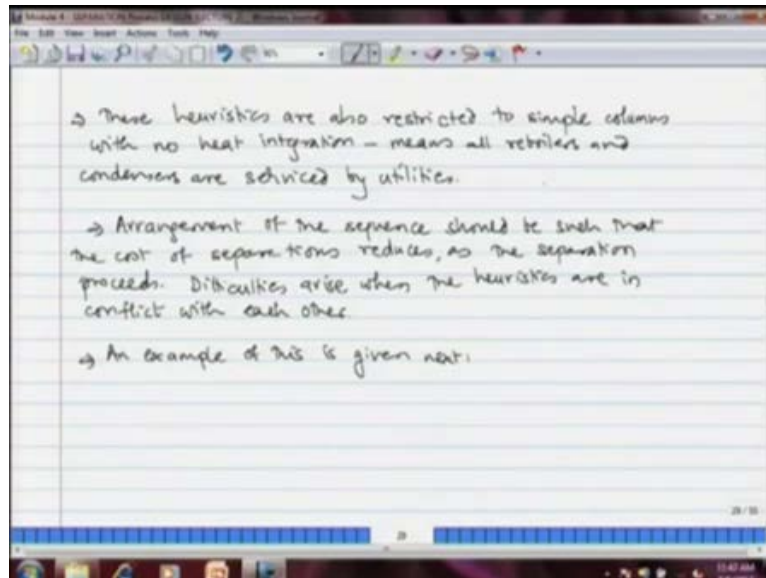 Module 4 - SEPARATION Process DESIGN LECTURE 2 - Windows Journal
File Edit View Insert Actions Tools Help
→ These heuristics are also restricted to simple columns
with no heat integration – means all reboilers and
condensers are serviced by utilities.
→ Arrangement of the sequence should be such that
the cost of separations reduces, as the separation
proceeds. Difficulties arise when the heuristics are in
conflict with each other
→ An example of this is given next:
29
11:40 AM